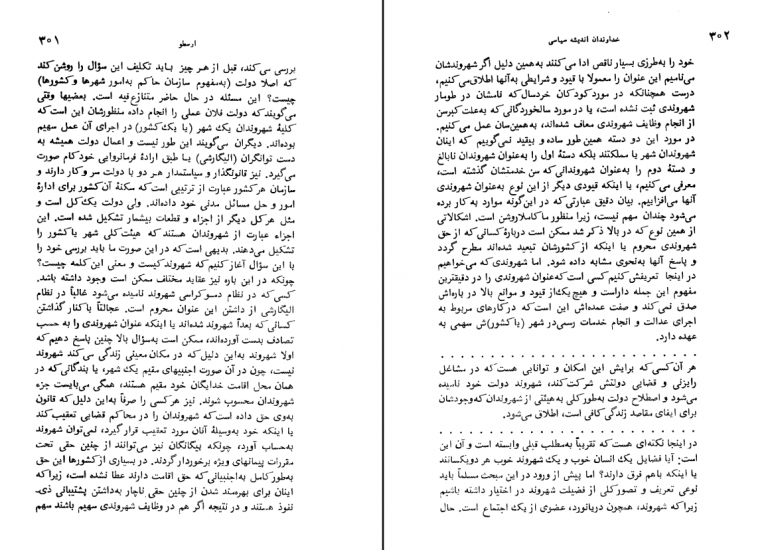 ۳۰۱
ارسطو
بررسی می‌کند، قبل از هر چیز باید تکلیف این سؤال را روشن کند
که اصلا دولت (به‌مفهوم سازمان حاکم به‌امور شهرها و کشورها)
چیست؟ این مسئله در حال حاضر متنازع‌فیه است. بعضیها وقتی
می‌گویند که دولت فلان عملی را انجام داده منظورشان این است که
کلیهٔ شهروندان یک شهر (یا یک کشور) در اجرای آن عمل سهیم
بوده‌اند. دیگران می‌گویند این طور نیست و اعمال دولت همیشه به
دست توانگران (الیگارشی) یا طبق ارادهٔ فرمانروایی خودکام صورت
می‌گیرد. نیز قانونگذار و سیاستمدار هر دو با دولت سر و کار دارند و
سازمان هر کشور عبارت از ترتیبی است که سکنهٔ آن کشور برای ادارهٔ
امور و حل مسائل مدنی خود داده‌اند. ولی دولت یک کل است و
مثل هر کل دیگر از اجزاء و قطعات بیشمار تشکیل شده است. این
اجزاء عبارت از شهروندان هستند که هیئت کلی شهر یا کشور را
تشکیل می‌دهند. بدیهی است که در این صورت ما باید بررسی خود را
با این سؤال آغاز کنیم که شهروند کیست و معنی این کلمه چیست؟
چونکه در این باره نیز عقاید مختلف ممکن است وجود داشته باشد.
کسی که در نظام دموکراسی شهروند نامیده می‌شود غالباً در نظام
الیگارشی از داشتن این عنوان محروم است. عجالتاً با کنار گذاشتن
کسانی که بعداً شهروند شده‌اند یا اینکه عنوان شهروندی را به حسب
تصادف بدست آورده‌اند، ممکن است به‌سؤال بالا چنین پاسخ دهیم که
اولا شهروند به‌این دلیل که در مکان معینی زندگی می کند شهروند
نیست، چون در آن صورت اجنبیهای مقیم یک شهر، یا بندگانی که در
همان محل اقامت خدایگان خود مقیم هستند، همگی می‌بایست جزء
شهروندان محسوب شوند. نیز هر کسی را صرفاً به‌این دلیل که قانون
به‌وی حق داده است که شهروندان را در محاکم قضایی تعقیب کند
یا اینکه خود به‌وسیلهٔ آنان مورد تعقیب قرار گیرد، نمی‌توان شهروند
به‌حساب آورد، چونکه بیگانگان نیز می‌توانند از چنین حقی تحت
مقررات پیمانهای ویژه برخوردار گردند. در بسیاری از کشورها این حق
به‌طور کامل به‌اجنبیانی که حق اقامت دارند عطا نشده است، زیرا که
اینان برای بهره‌مند شدن از چنین حقی ناچار به‌داشتن پشتیبانی ذی‌ـ
نفوذ هستند و در نتیجه اگر هم در وظایف شهروندی سهیم باشند سهم
۳۰۲
خداوندان اندیشه سیاسی
خود را به‌طرزی بسیار ناقص ادا می‌کنند به‌همین دلیل اگر شهروندشان
می‌نامیم این عنوان را معمولا با قیود و شرایطی به‌آنها اطلاق می‌کنیم،
درست همچنانکه در مورد کودکان خردسال که نامشان در طومار
شهروندی ثبت نشده است، یا در مورد سالخوردگانی که به‌علت کبرسن
از انجام وظایف شهروندی معاف شده‌اند، به‌همین‌سان عمل می‌کنیم.
در مورد این دو دسته همین طور ساده و بیقید نمی‌گوییم که اینان
شهروندان شهر یا مملکتند بلکه دستهٔ اول را به‌عنوان شهروندان نابالغ
و دستهٔ دوم را به‌عنوان شهروندانی که سن خدمتشان گذشته است،
معرفی می‌کنیم، یا اینکه قیودی دیگر از این نوع به‌عنوان شهروندی
آنها می‌افزاییم. بیان دقیق عبارتی که در این‌گونه موارد به کار برده
می‌شود چندان مهم نیست، زیرا منظور ما کاملا روشن است. اشکالاتی
از همین نوع که در بالا ذکر شد ممکن است دربارهٔ کسانی که از حق
شهروندی محروم یا اینکه از کشورشان تبعید شده‌اند مطرح گردد
و پاسخ آنها به‌نحوی مشابه داده شود. اما شهروندی که می‌خواهیم
در اینجا تعریفش کنیم کسی است که‌عنوان شهروندی را در دقیقترین
مفهوم این جمله داراست و هیچ یک از قیود و موانع بالا در باره‌اش
صدق نمی‌کند و صفت عمده‌اش این است که در کارهای مربوط به
اجرای عدالت و انجام خدمات رسمی در شهر (یا کشور)ش سهمی به
عهده دارد.
. . . . . . . . . . . . . . . . . . . . . . . . . . . . .
هر آن کسی که برایش این امکان و توانایی هست که در مشاغل
رایزنی و قضایی دولتش شرکت کند، شهروند دولت خود نامیده
می‌شود و اصطلاح دولت به‌طور کلی به‌هیئتی از شهروندان که وجودشان
برای ایفای مقاصد زندگی کافی است، اطلاق می‌شود.
. . . . . . . . . . . . . . . . . . . . . . . . . . . . .
در اینجا نکته‌ای هست که تقریباً به‌مطلب قبلی وابسته است و آن این
است: آیا فضایل یک انسان خوب و یک شهروند خوب هر دو یکسانند
یا اینکه باهم فرق دارند؟ اما پیش از ورود در این مبحث مسلماً باید
نوعی تعریف و تصور کلی از فضیلت شهروند در اختیار داشته باشیم
زیرا که شهروند، همچون دریانورد، عضوی از یک اجتماع است. حال